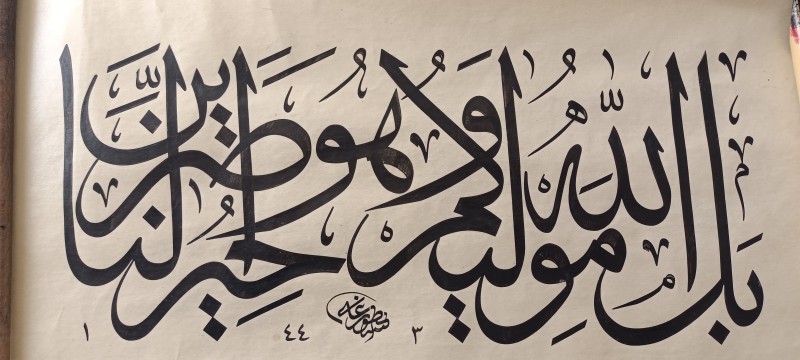 بَلِ اللّٰهُ مَوْلٰيكُمْ وَهُوَ خَيْرُ النَّاصِرِينَ
١٤٤٣